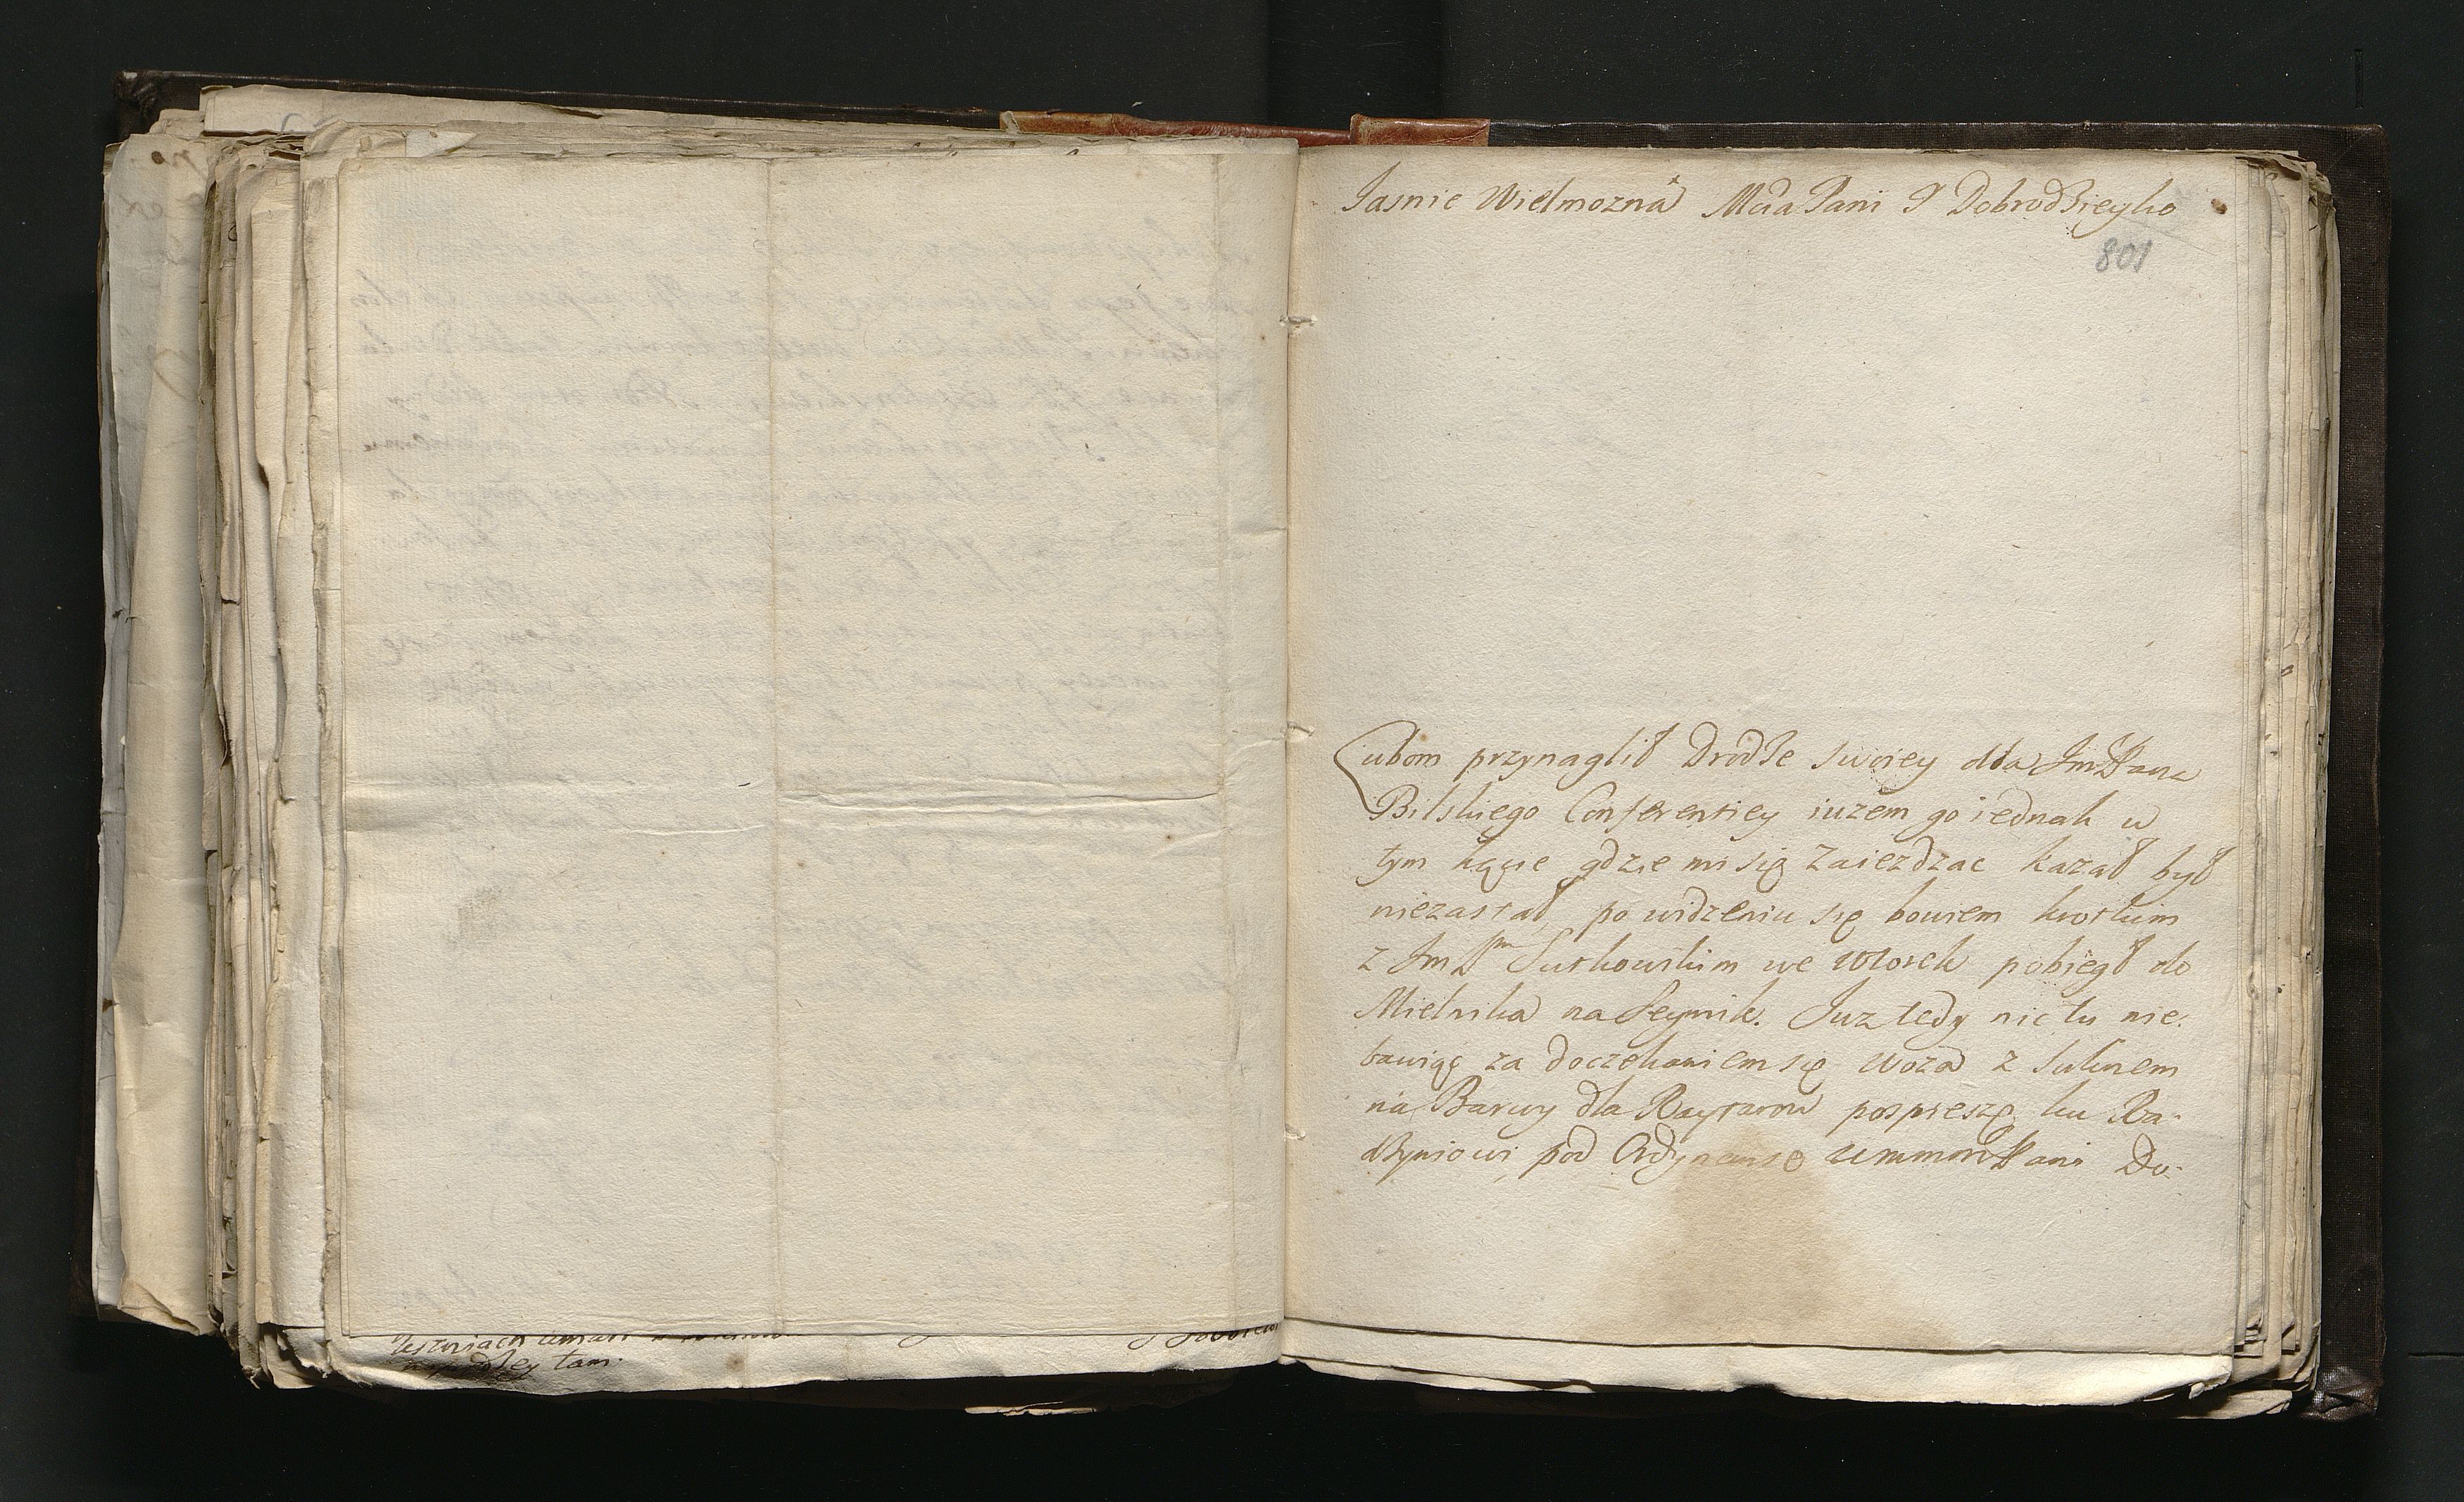 Jasnie Wielmozna Mcia Pani J Dobrodzieyko
801
Lubom przynaglił Drodze swoiey dla Jm Pana
Bilskiego Conferentiey iuzem go iednak w
tym kącie gdzie mi się zaiezdzac kazał był
niezastał, po widzeniu się bowiem krotkim
z Jm Pm Sutkowskim we wtorek pobiegł do
Mielnika na Seymik. Juz tedy nic tu nie
bawiąc za doczekaniem się woza z suknem
na Barwy dla Raytarow pospieszę ku Ra-
dzyniowi pod Ordynansę Pani Do-
tam.